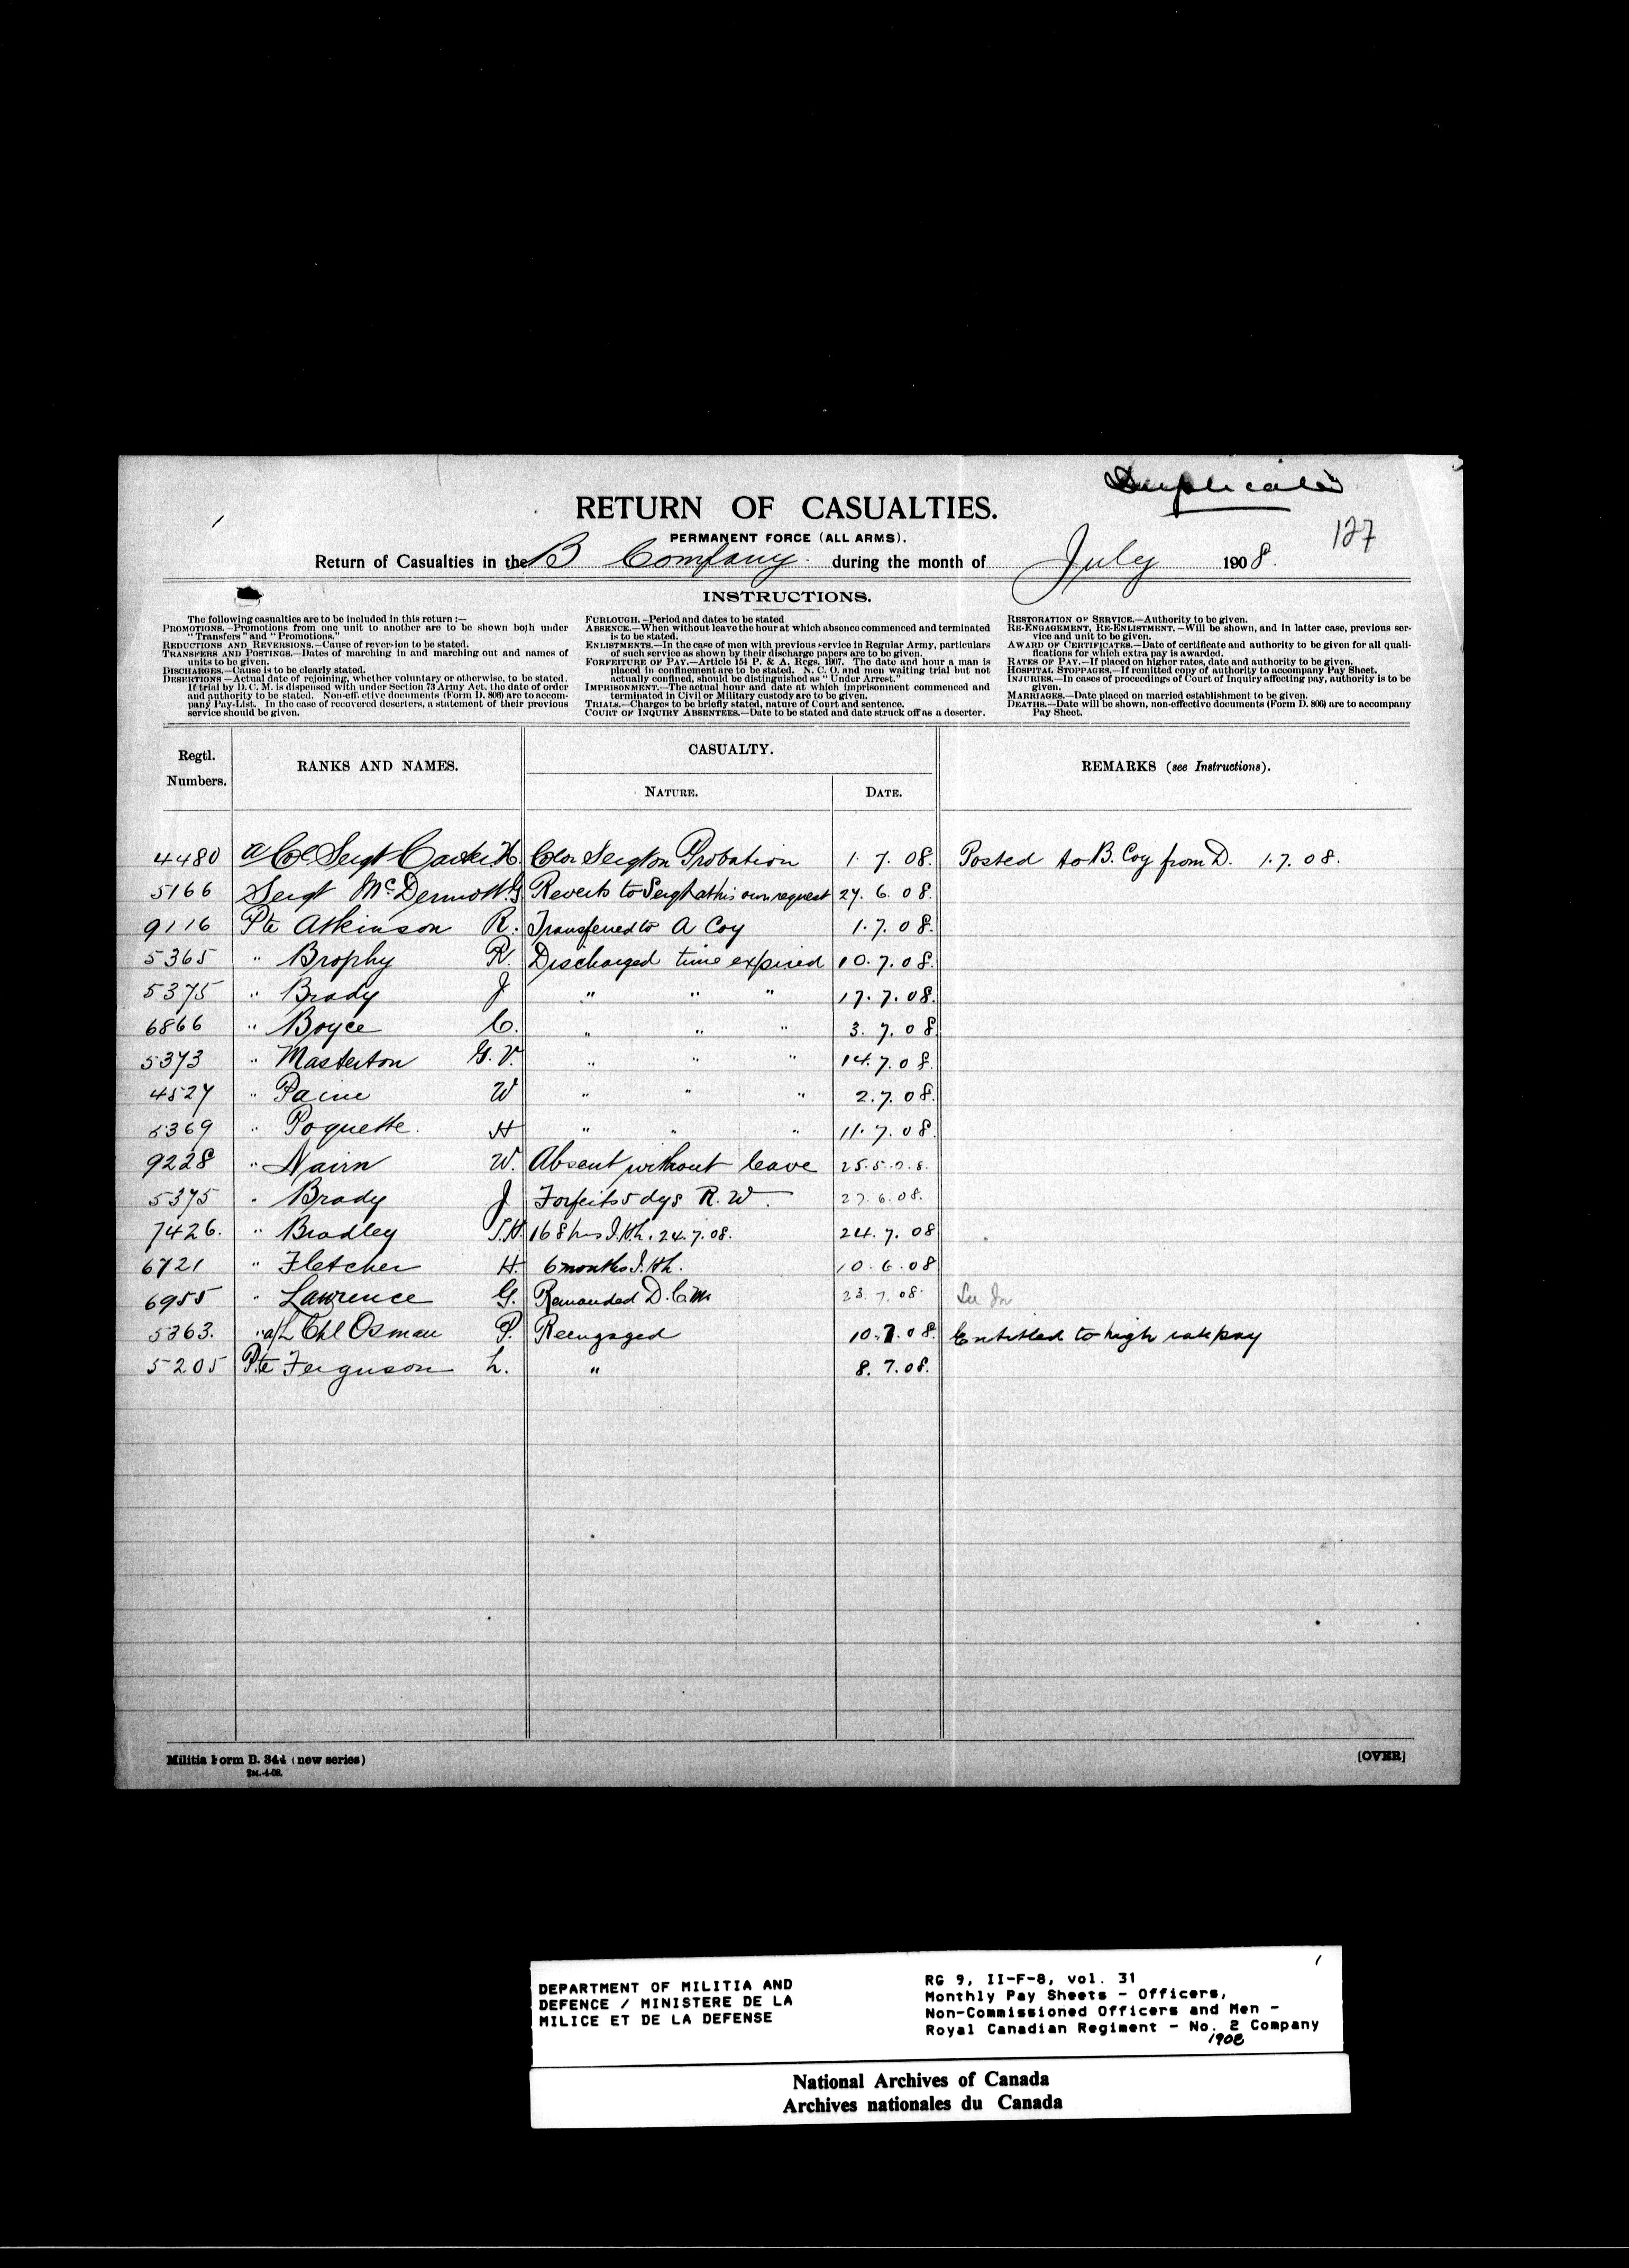 Duplicate
RETURN OF CASUALTIES.
127
PERMANENT FORCE (ALL ARMS).
Return of Casualties in the B Company. during the month of July 1908.
INSTRUCTIONS.
The following casualties are to be included in this return :—
PROMOTIONS.—Promotions from one unit to another are to be shown both under
"Transfers" and "Promotions."
REDUCTIONS AND REVERSIONS.—Cause of reversion to be stated.
TRANSFERS AND POSTINGS.—Dates of marching in and marching out and names of
units to be given.
DISCHARGES.—Cause is to be clearly stated.
DESERTIONS—Actual date of rejoining, whether voluntary or otherwise, to be stated.
If trial by D. C. M. is dispensed with under Section 73 Army Act, the date of order
and authority to be stated. Non-effective documents (Form D. 806) are to accom-
pany Pay-List. In the case of recovered deserters, a statement of their previous
service should be given.
FURLOUGH.—Period and dates to be stated
ABSENCE.—When without leave the hour at which absence commenced and terminated
is to be stated.
ENLISTMENTS.—In the case of men with previous service in Regular Army, particulars
of such service as shown by their discharge papers are to be given.
FORFEITURE OF PAY.—Article 154 P. & A. Regs. 1907. The date and hour a man is
placed in confinement are to be stated. N. C. O. and men waiting trial but not
actually confined, should be distinguished as "Under Arrest."
IMPRISONMENT.—The actual hour and date at which imprisonment commenced and
terminated in Civil or Military custody are to be given.
TRIALS.—Charges to be briefly stated, nature of Court and sentence.
COURT OF INQUIRY ABSENTEES.—Date to be stated and date struck off as a deserter.
RESTORATION OF SERVICE.—Authority to be given.
RE-ENGAGEMENT, RE-ENLISTMENT.—Will be shown, and in latter case, previous ser-
vice and unit to be given.
AWARD OF CERTIFICATES.—Date of certificate and authority to be given for all quali-
fications for which extra pay is awarded.
RATES OF PAY.—If placed on higher rates, date and authority to be given.
HOSPITAL STOPPAGES.—If remitted copy of authority to accompany Pay Sheet.
INJURIES.—In cases of proceedings of Court of Inquiry affecting pay, authority is to be
given.
MARRIAGES.—Date placed on married establishment to be given.
DEATHS.—Date will be shown, non-effective documents (Form D. 806) are to accompany
Pay Sheet.
Regtl. Numbers. RANKS AND NAMES. CASUALTY. REMARKS (see Instructions).
NATURE. DATE.
4480 a Col Sergt H. Color Sergt on Probation 1. 7. 08. Posted to B. Coy from D. 1.7.08.
5166 Sergt McDermott. G Reverts to Sergt at his own request 27. 6. 08.
9116 Pte Atkinson R. Transferred to A Coy 1.7.08.
5365 " Brophy R. Discharged time expired 10.7.08.
5375 " Brady J " " " 17.7.08.
6866 " Boyce C. " " " 3.7.08
5373 " Masterton G.V. " " " 14.7.08.
4527 " Paine W " " " 2.7.08.
5369 " Poquette. H " " " 11.7.08.
9228 " Nairn W. Absent without leave 25.5.08.
5375 " Brady J Forfeits 5 dys R.W. 27.6.08.
7426. " Bradley T.H. 168 hrs I.H.L. 24.7.08. 24.7.08
6721 " Fletcher H. 6 months I.H.L. 10.6.08
6955 " Lawrence G. Remanded D.C.M. 23.7.08.
5363. " a/L Cpl Osman P. Reengaged 10.7.08. Entitled to high rate pay
5205 Pte Ferguson L. " 8.7.08.
Militia Form B. 344 (new series)
2M.-4-08.
[OVER]
DEPARTMENT OF MILITIA AND
DEFENCE / MINISTERE DE LA
MILICE ET DE LA DEFENSE
RG 9, II-F-8, vol. 31
Monthly Pay Sheets - Officers,
Non-Commissioned Officers and Men -
Royal Canadian Regiment - No. 2 Company
1908
National Archives of Canada
Archives nationales du Canada